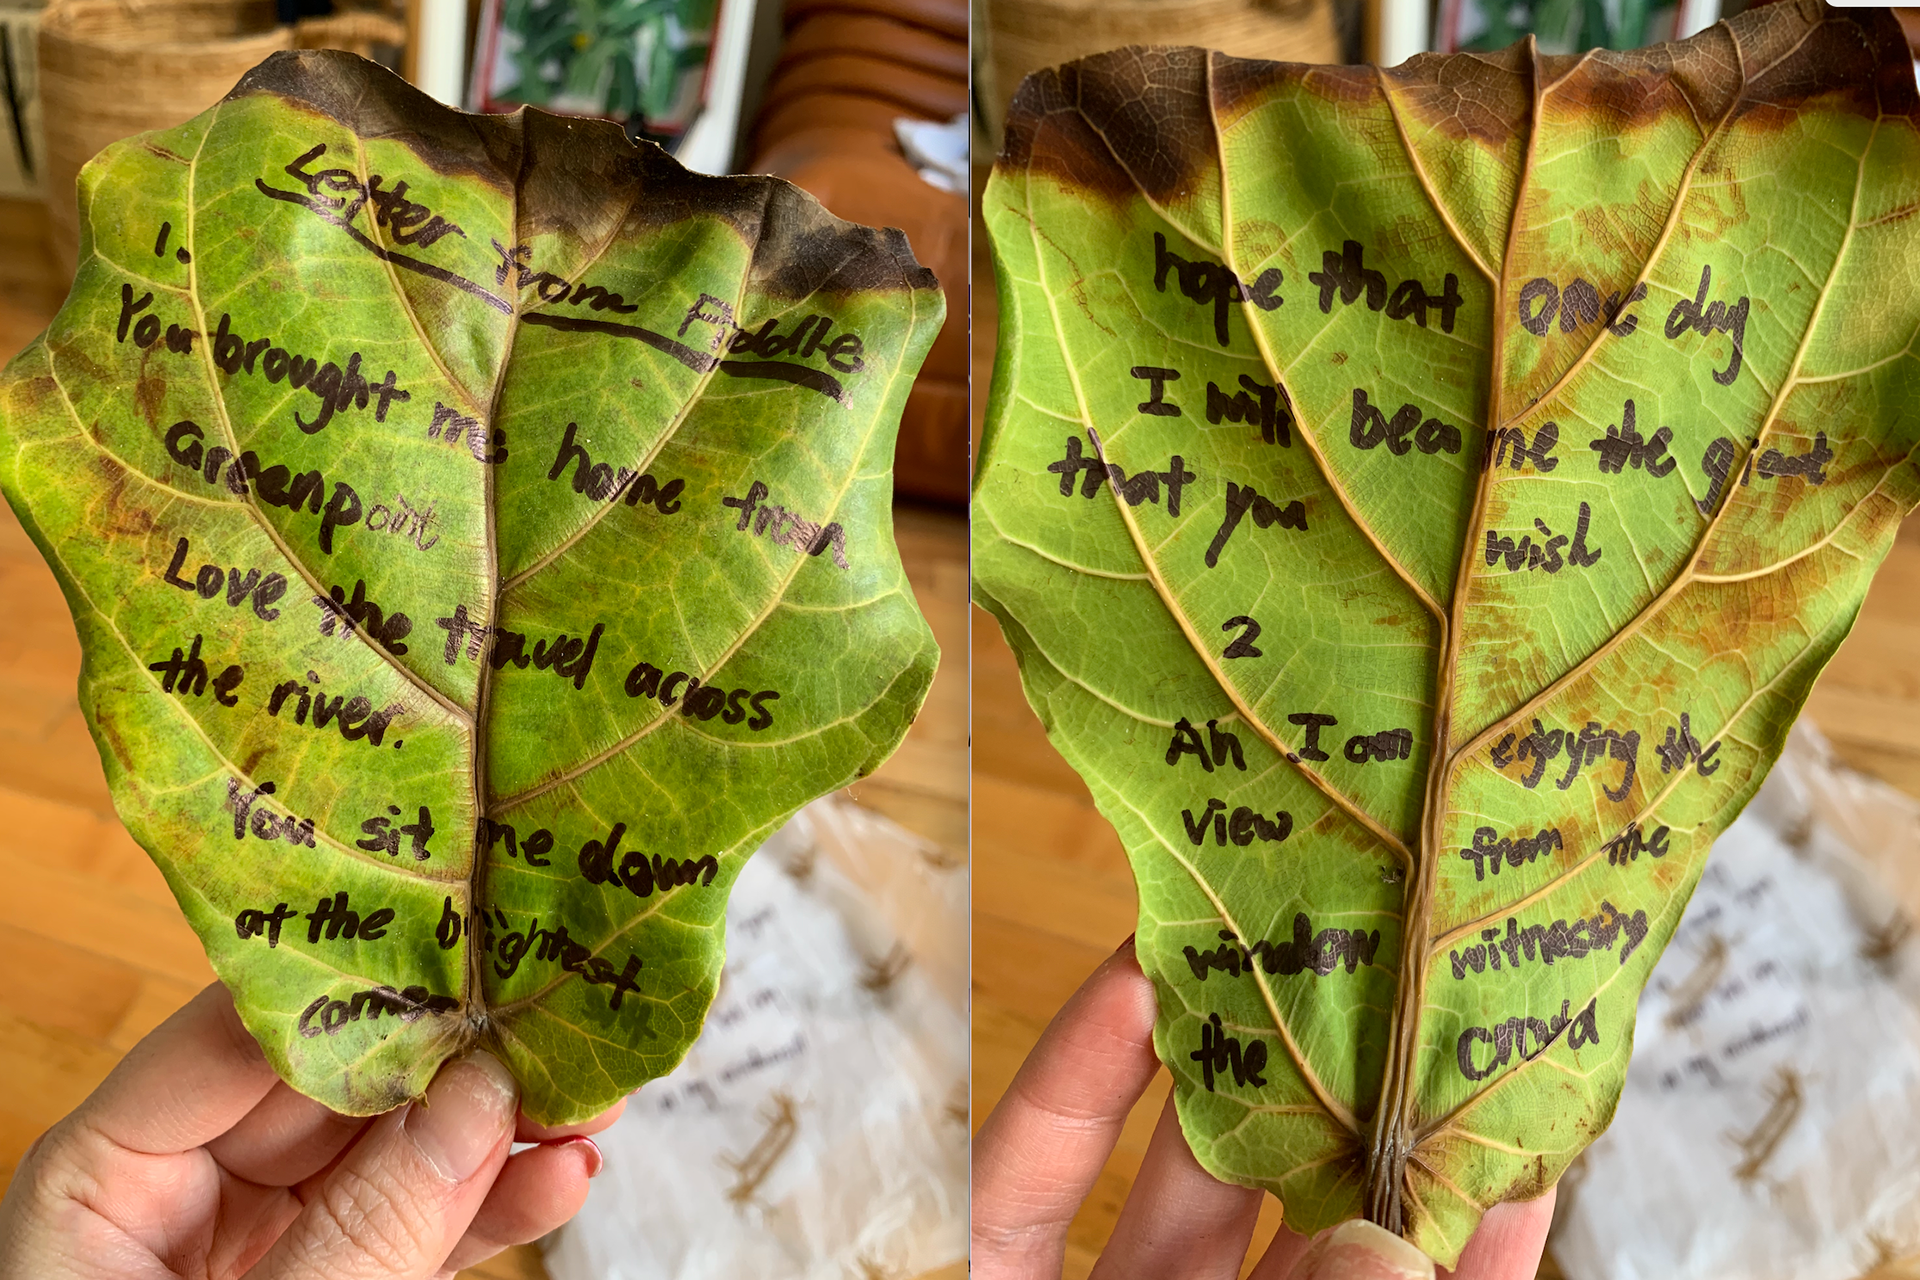 Letter from Fiddle
1.
You brought me home from
Greenpoint
Love the travel across
the river.
You sit me down
at the brightest
corner
hope that one day
I will become the giant
that you wish
2
Ah I am enjoying the
view from the
window witnessing
the crowd